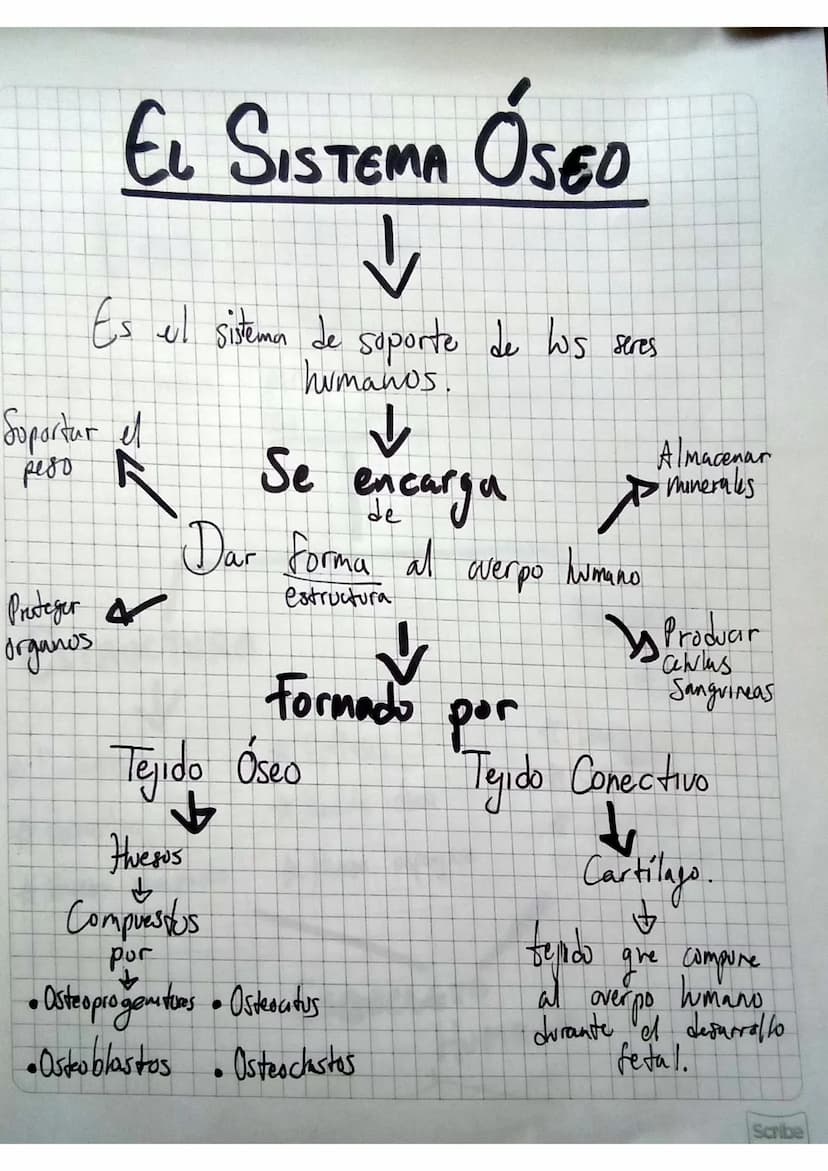 EL SISTEMA ÓSEO
Es el sistema de soporte de los seres
humanos.
Soportar el
peso
Se encarga
de
Almacenar
minerales
Dar forma al cuerpo humano
estructura
Proteger
órganos
Producir
células
sanguineas
Formado por
Tejido Óseo
Tejido Conectivo
Huesos
Cartílago.
Compuestos
por
tejido que compone
al cuerpo humano
durante el desarrollo
fetal.
• Osteoprogenitores • Osteocitos
• Osteoblastos • Osteoclastos
Scribe